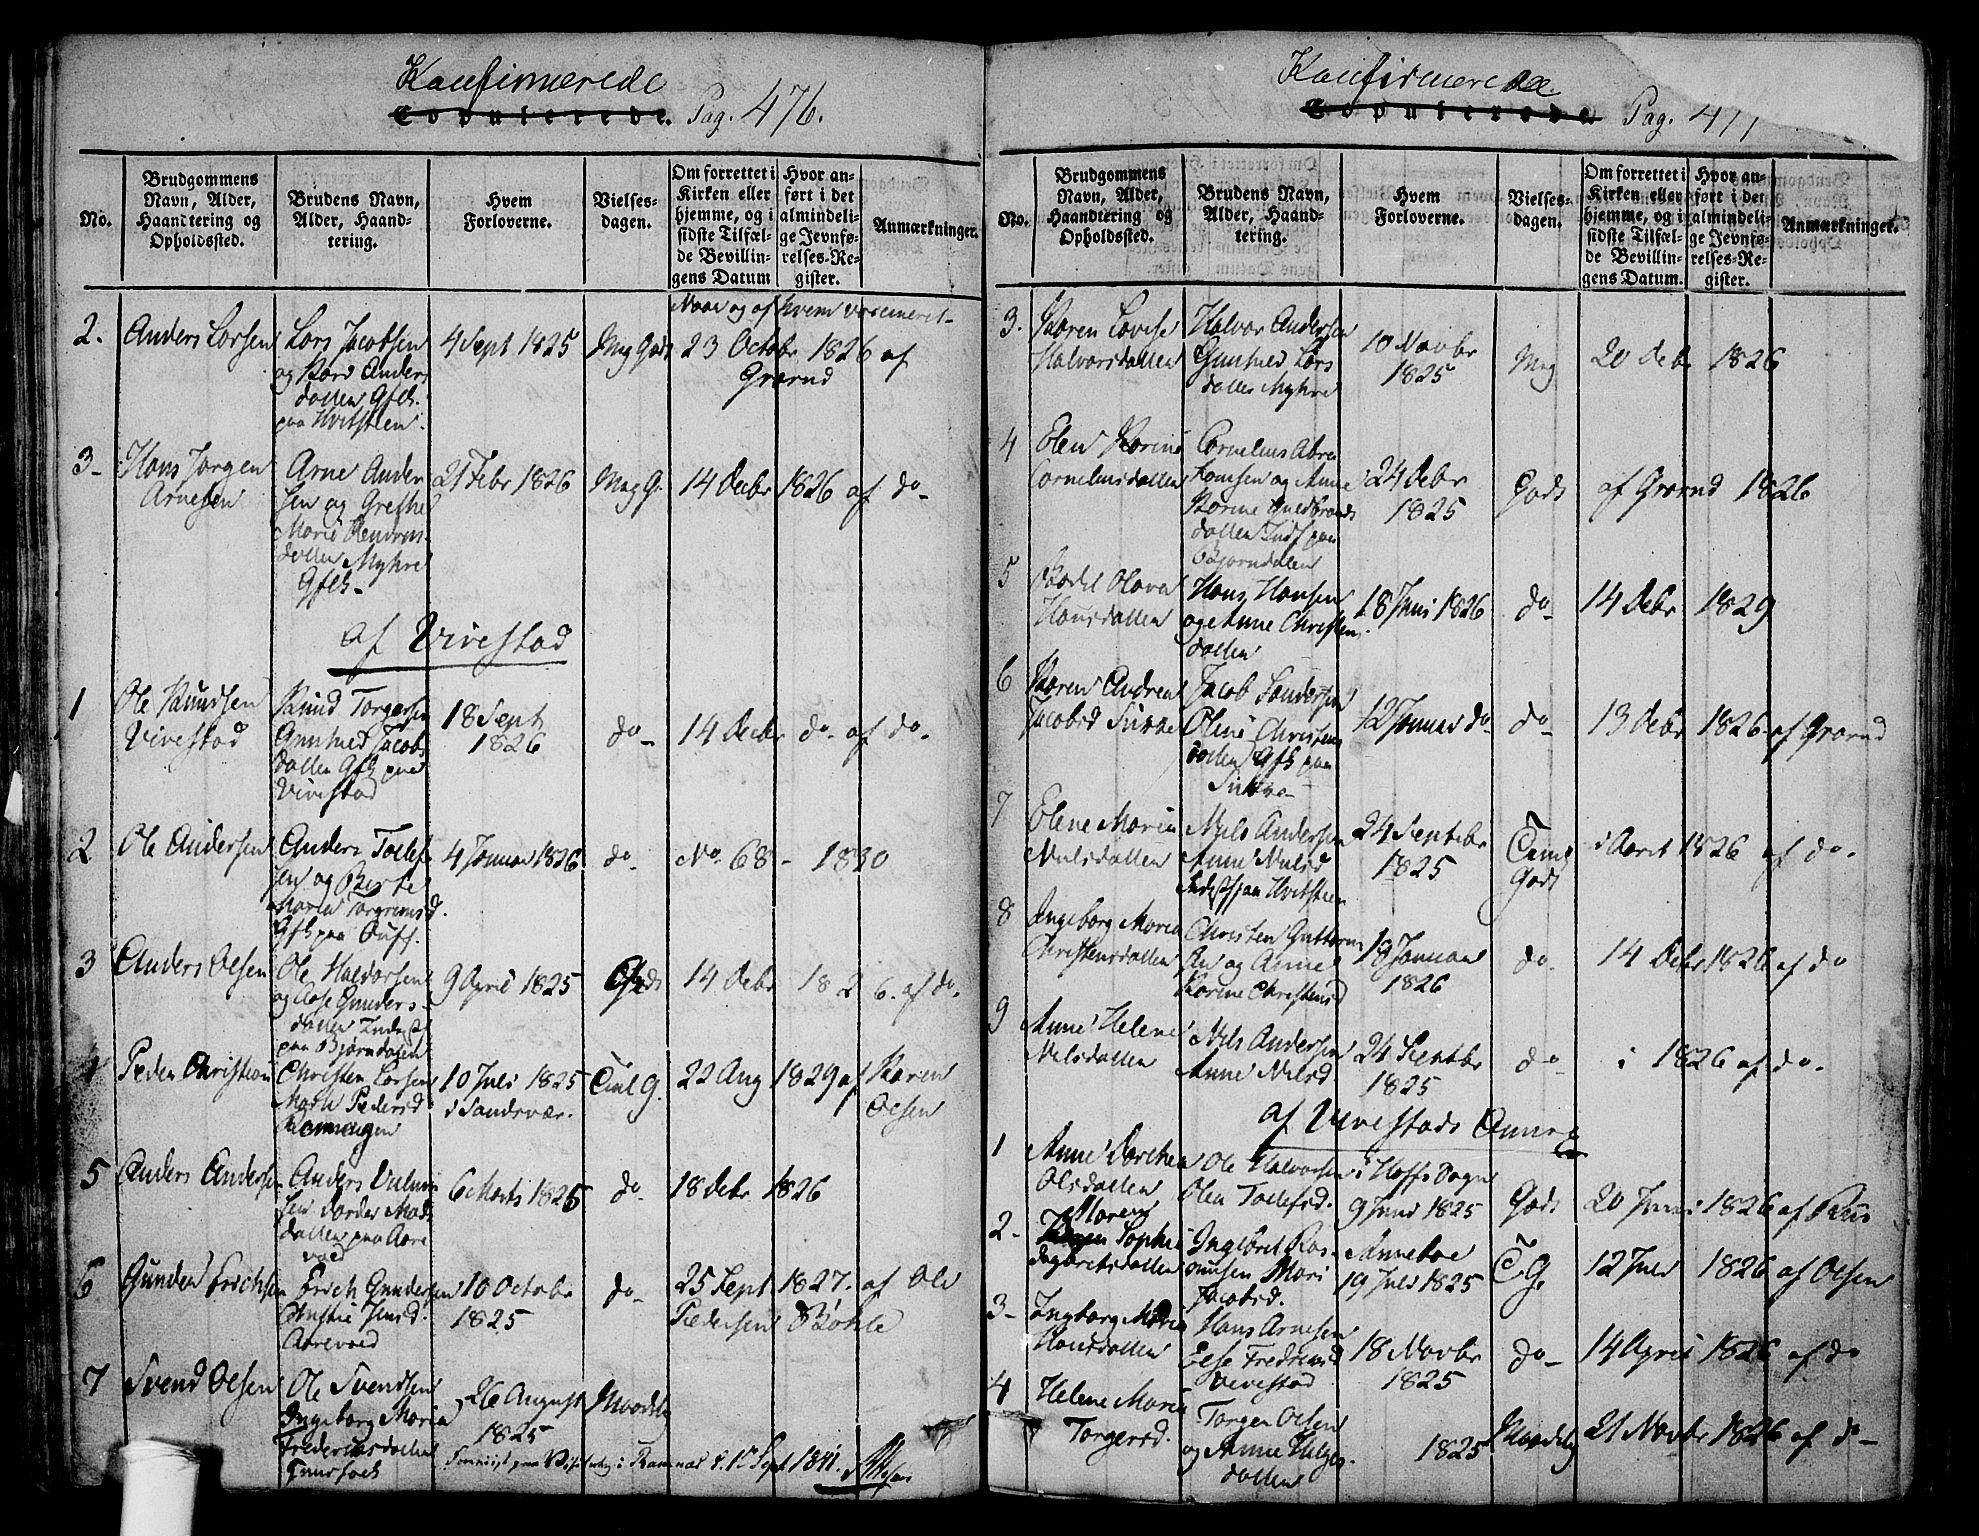 Konfirmerede
Copulerede. Pag. 476.
No.
Brudgommens Navn, Alder, Haandtering og Opholdssted.
Brudens Navn, Alder, Haandtering.
Hvem Forloverne.
Vielsesdagen.
Om forrettet i Kirken eller hjemme, og i sidste Tilfælde Bevillingens Datum
Hvor anført i det almindelige Jevnførelses-Register.
Anmærkninger.
Naar og af hvem vaccineret
2. Anders Larsen
Lars Jacobsen
og Kari Anders
datter Gfch.
paa Hvitsteen.
4 Sept 1825
Meg Gods
23 Octobr 1826 af
Grørud
3- Hans Jørgen
Arnesen
Arne Ander
sen og Grethe
Marie
datter Myhre
Gfch-
21 Febr 1826
Meg G.
14 Decbr 1826 af do-
af Vivestad
1 Ole Knudsen
Vivestad
Knud Torgersen
Gunhild Jacobs
datter Gfch paa
Vivestad
18 Sept
1826
do-
14 Decbr do- af do.
2 Ole Andersen
Anders Tollef
sen og Berte
Maria
Gfch paa
4 Januar 1826.
do-
No. 68- 1830
3 Anders Olsen
Ole Halvorsen
og Aase Gunders
datter Inderst
paa Bjørndalen
9 April 1825
Gods
14 Debr 1826. af do.
4 Peder Christian
Christen Larsen
Mari Pedersd
10 Juli 1825
i Sandsvær.
Tml G.
22 Aug 1829 af Karen
Olsen
5 Anders Andersen
Anders
sen Dordei Mads
datter paa Aare
vold
6 Marts 1825
do-
18 Debr 1826
6 Gunder Erichsen
Erich Gundersen
Christie Jensd.
Aarevold
10 Octobr
1825
do-
25 Sept 1827. af Ole
Pedersen Bøhle
7 Svend Olsen
Ole Svendsen
Ingeborg Maria
Fredericksdatter
26 August
1825
Maadelig
i Ramnæs d. 1 Sept 1841.
Konfirmerede
Copulerede Pag. 477
No.
Brudgommens Navn, Alder, Haandtering og Opholdssted.
Brudens Navn, Alder, Haandtering.
Hvem Forloverne.
Vielsesdagen.
Om forrettet i Kirken eller hjemme, og i sidste Tilfælde Bevillingens Datum.
Hvor anført i det almindelige Jevnførelses-Register.
Anmærkninger.
3. Karen Lovise
Halvorsdatter
Halvor Andersen
Gunhild Lars
datter Myhre
10 Novbr
1825
Meg
20 Debr 1826
4 Elen Karine
Cornelinsdatter
Cornelius Abra
hamsen og Anne
Karine Guldbrands
datter Inds paa
Bjørndalen
24 Debr
1825
Gods
af Grørud 1826
5 Bodil Olava
Hansdatter
Hans Hansen
og Anne Christens
datter
18 Juni 1826
do-
14 Debr 1829
6 Karen Andrea
Jacobsd
Jacob Sondersen
Oline Christens
datter Gfch paa
12 Januar do-
do-
13 Debr 1826- af Grørud
7 Elene Maria
Nielsdatter
Niels Andersen
Anne Nielsd
Inderst paa Hvitsteen
24 Septebr
1825
Teml
Gods
i Aaret 1826 af do.
8 Ingeborg Maria
Christensdatter
Christen Guttorm
sen og Anne
Karine Christensd
18 Januar
1826
do-
14 Debr 1826 af do
9 Anne Helene
Nielsdatter
Niels Andersen
Anne Nielsd
24 Septbr
1825
do
i 1826 af do.
af Vivestads Annex
1 Anne Dorthea
Olsdatter
Ole Halvorsen
Olea Tollefsd.
i Hoffs Sogn
9 Juni 1825
Gods
20 Juni 1826 af Ruus
2- Maren Sophie
Ingbretsdatter
Ingebret Ras-
mussen Mari
Jacobsd.
Anneboe
19 Juli 1825
T G.
12 Juli 1826 af Olsen
3- Ingborg Maria
Hansdatter
Hans Arnesen
Else Fredricksd
Vivestad
18 Novbr
1825
do-
14 April 1826 af do
4 Helene Maria
Torgersd.
Torger Olsen
og Anne Helges
datter
1825
Maadelig
21 Novbr 1826 af do-